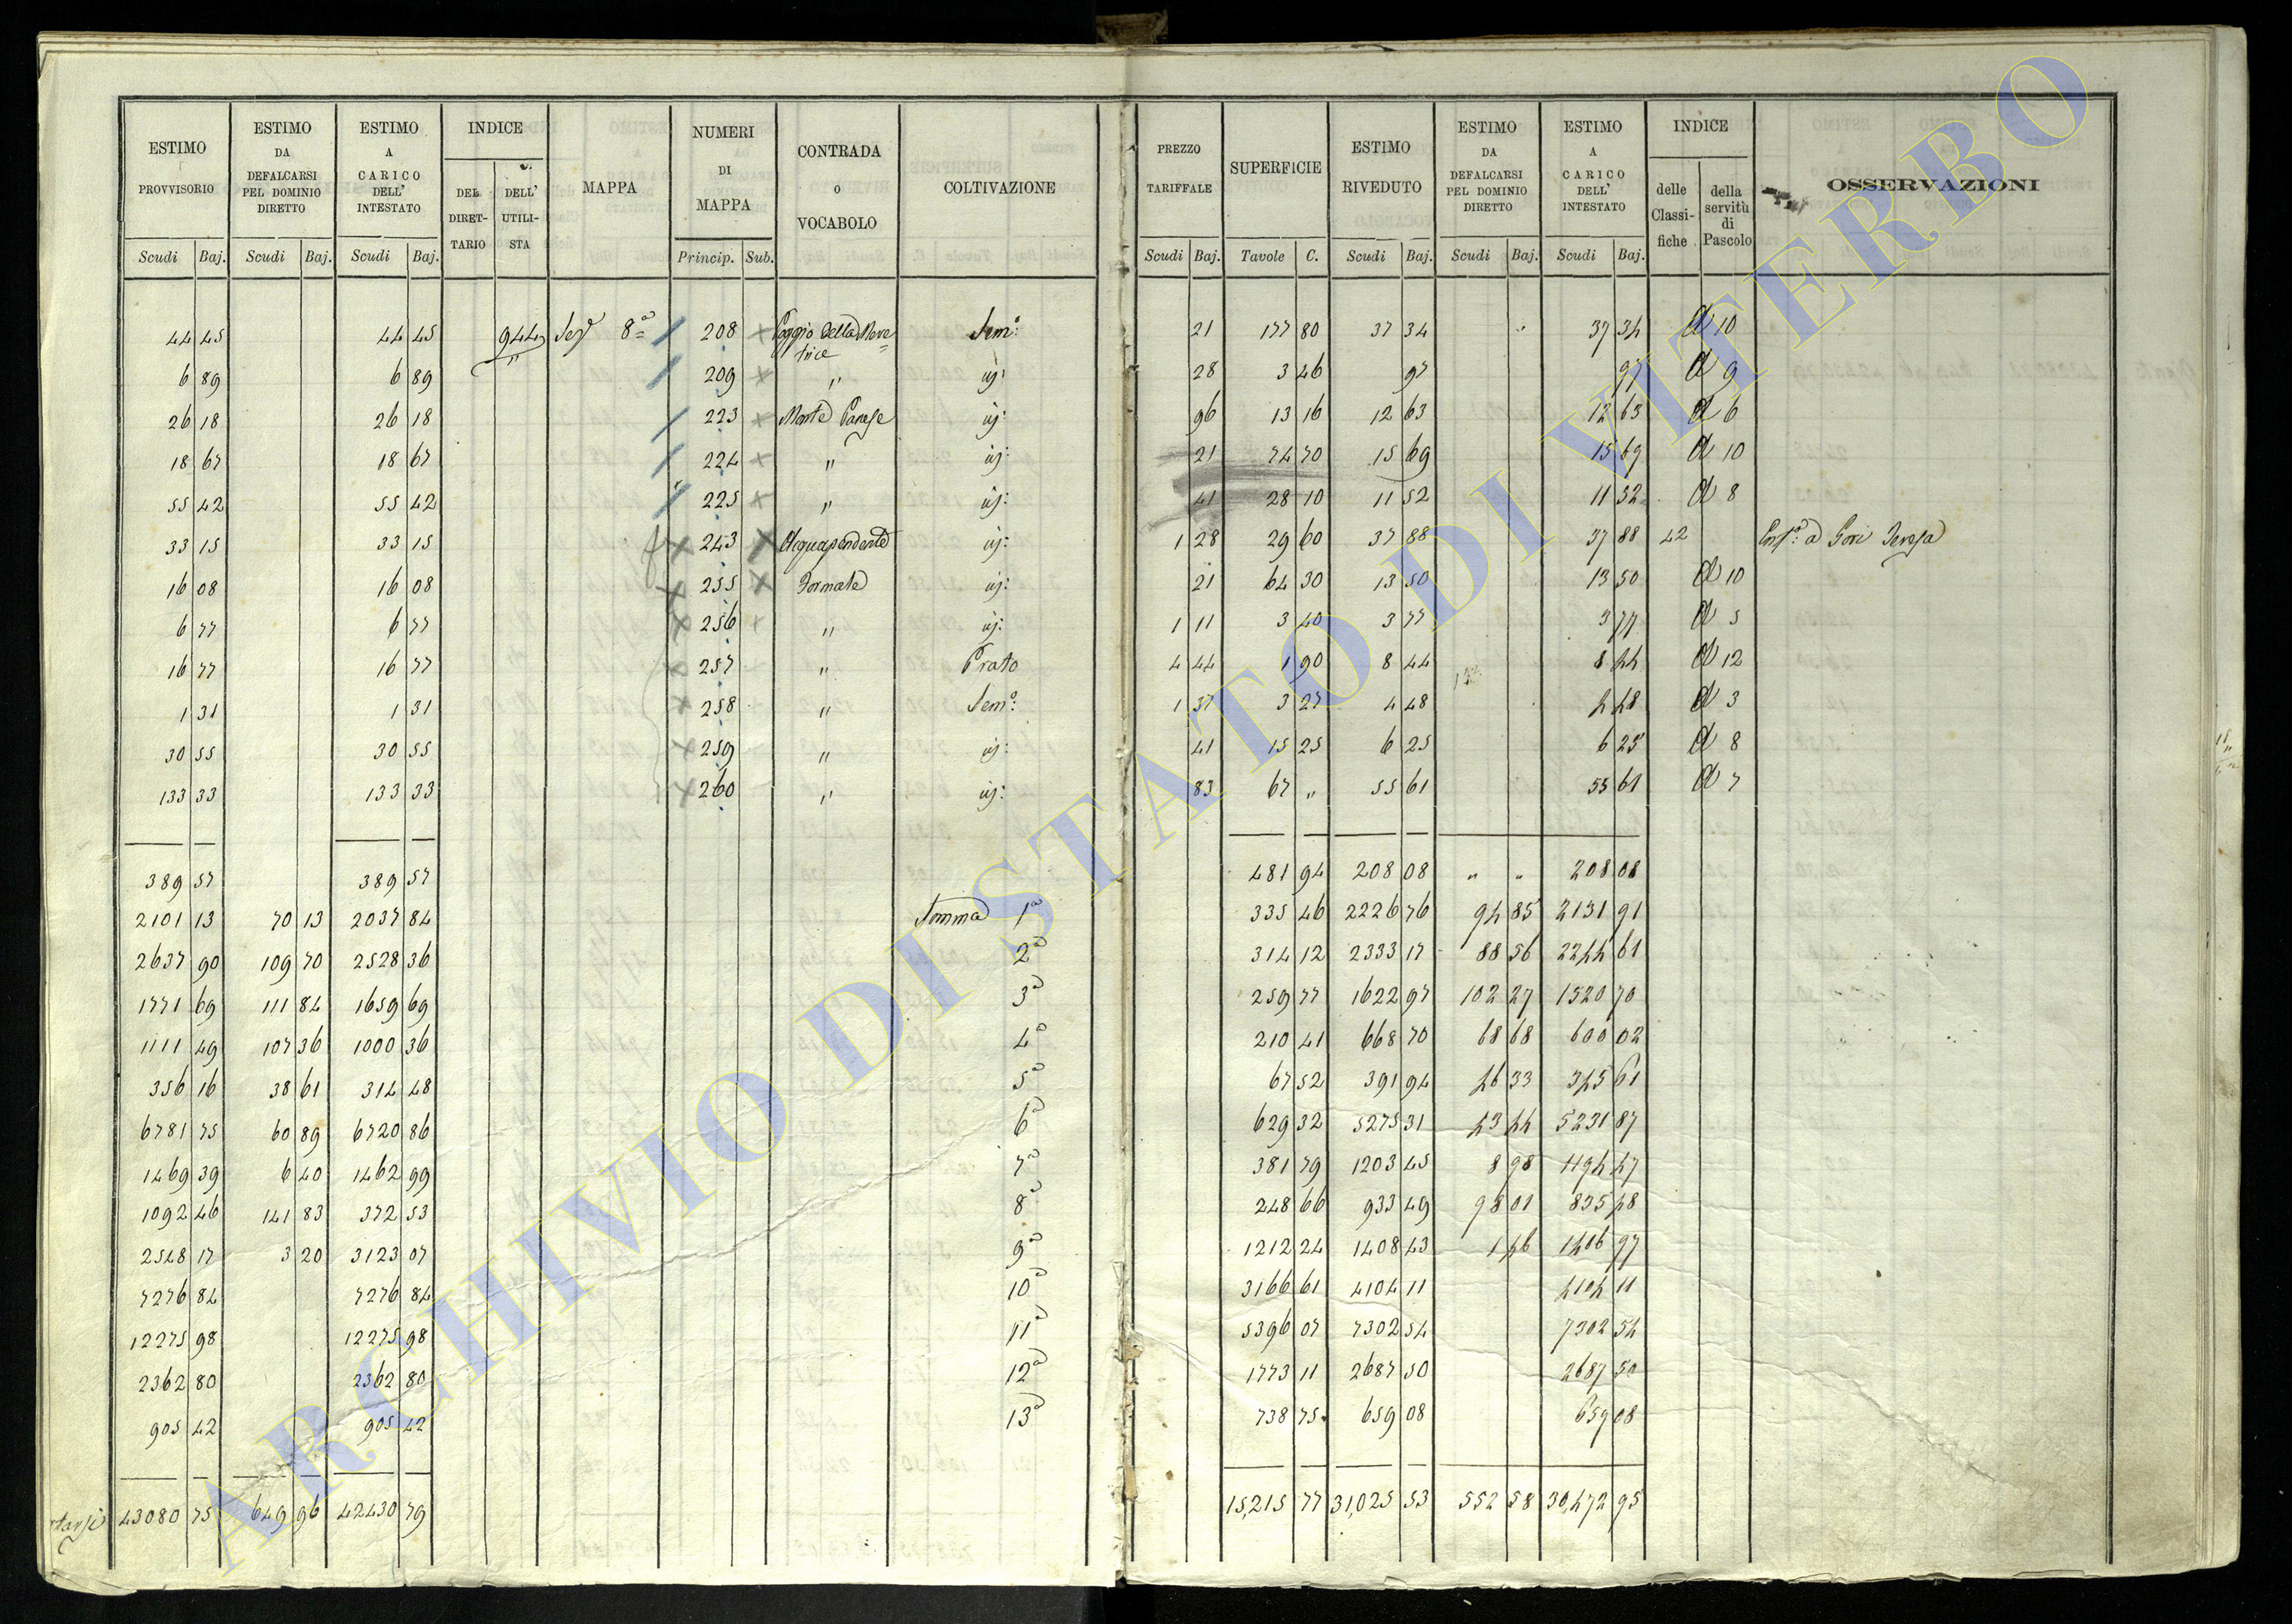 ESTIMO PROVVISORIO | ESTIMO DA DEFALCARSI PEL DOMINIO DIRETTO | ESTIMO A CARICO DELL' INTESTATO | INDICE DEL DIRET-TARIO | DELL' UTILI-STA | MAPPA | NUMERI DI MAPPA | CONTRADA O VOCABOLO | COLTIVAZIONE | PREZZO TARIFFALE | SUPERFICIE | ESTIMO RIVEDUTO | ESTIMO DA DEFALCARSI PEL DOMINIO DIRETTO | ESTIMO A CARICO DELL' INTESTATO | INDICE delle Classi-fiche | della servitù di Pascolo | OSSERVAZIONI
Scudi Baj. | Scudi Baj. | Scudi Baj. | Princip. Sub. | Scudi Baj. | Tavole C. | Scudi Baj. | Scudi Baj. | Scudi Baj.
44 45 | 44 45 | 944 | 8ª | 208 | Poggio della Mere trice | Sem° | 21 | 177 80 | 37 34 | " | 37 34 | A 10
6 89 | 6 89 | " | 209 | " | id: | 28 | 3 46 | 97 | 97 | A 9
26 18 | 26 18 | 223 | Monte Parese | id: | 96 | 13 16 | 12 63 | 12 63 | A 6
18 67 | 18 67 | 224 | " | id: | 21 | 74 70 | 15 69 | 15 69 | A 10
55 42 | 55 42 | 225 | " | id: | 41 | 28 10 | 11 52 | 11 52 | A 8
33 15 | 33 15 | 243 | Acquapendente | id: | 1 28 | 29 60 | 37 88 | 37 88 | 42 | a Gori Teresa
16 08 | 16 08 | 255 | Formate | id: | 21 | 64 30 | 13 50 | 13 50 | A 10
6 77 | 6 77 | 256 | " | id: | 1 11 | 3 40 | 3 77 | 3 77 | A 5
16 77 | 16 77 | 257 | " | Prato | 4 44 | 1 90 | 8 44 | 8 44 | A 12
1 31 | 1 31 | 258 | " | Sem° | 1 37 | 3 27 | 4 48 | 4 48 | A 3
30 55 | 30 55 | 259 | " | id: | 41 | 15 25 | 6 25 | 6 25 | A 8
133 33 | 133 33 | 260 | " | id: | 83 | 67 " | 55 61 | 55 61 | A 7
389 57 | 389 57 | 481 94 | 208 08 | " " | 208 08
2101 13 | 70 13 | 2037 84 | Somma 1ª | 335 46 | 2226 76 | 94 85 | 2131 91
2637 90 | 109 70 | 2528 36 | 2ª | 314 12 | 2333 17 | 88 56 | 2244 61
1771 69 | 111 84 | 1659 69 | 3ª | 259 77 | 1622 97 | 102 27 | 1520 70
1111 49 | 107 36 | 1000 36 | 4ª | 210 41 | 668 70 | 68 68 | 600 02
356 16 | 38 61 | 314 48 | 5ª | 67 52 | 391 94 | 46 33 | 345 61
6781 75 | 60 89 | 6720 86 | 6ª | 629 32 | 5275 31 | 43 44 | 5231 87
1469 39 | 6 40 | 1462 99 | 7ª | 381 79 | 1203 45 | 8 98 | 1194 47
1092 46 | 141 83 | 372 53 | 8ª | 248 66 | 933 49 | 98 01 | 835 48
2548 17 | 3 20 | 3123 07 | 9ª | 1212 24 | 1408 43 | 1 46 | 1406 97
7276 84 | 7276 84 | 10ª | 3166 61 | 4104 11 | 4104 11
12275 98 | 12275 98 | 11ª | 5396 07 | 7302 54 | 7302 54
2362 80 | 2362 80 | 12ª | 1773 11 | 2687 50 | 2687 50
905 42 | 905 42 | 13ª | 738 75 | 659 08 | 659 08
43080 75 | 649 96 | 42430 79 | 15,215 77 | 31,025 53 | 552 58 | 30,472 95
ARCHIVIO DI STATO DI VITERBO